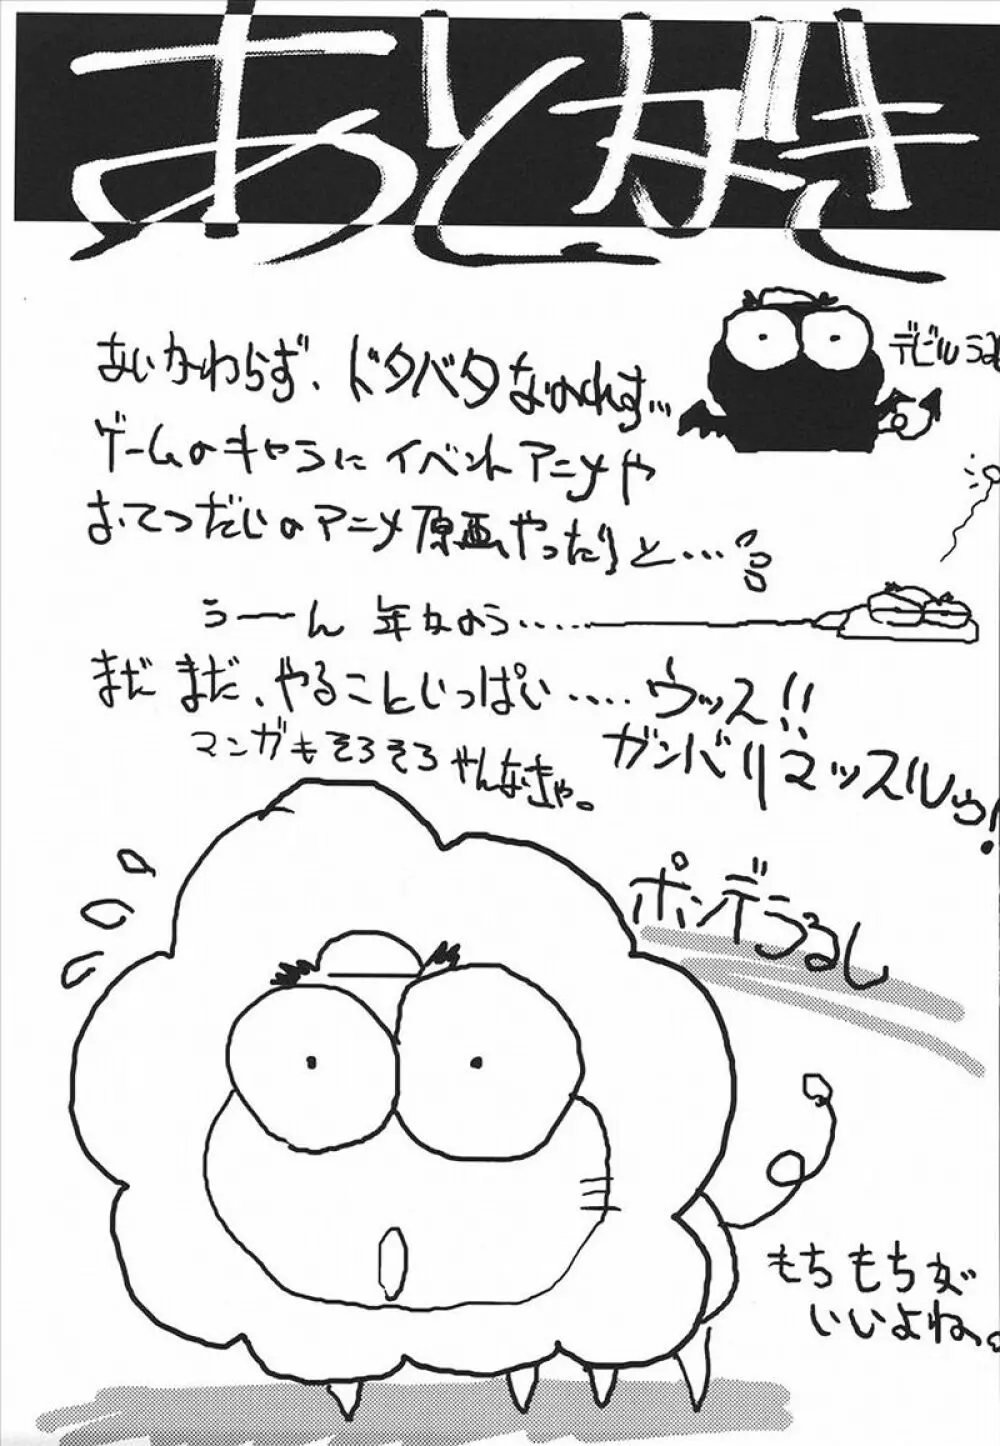 あとがき
あいかわらず、ドタバタなのれす…
デビルうる
ゲームのキャラにイベントアニメや
おてつだいのアニメ原画やったりと…
うーーん 年かのう……
まだまだ、やることいっぱい…… ウッス!!
ガンバリマッスルゥ!
マンガもそろそろやんなきゃ。
ポンデうるし
もちもちが
いいよね。